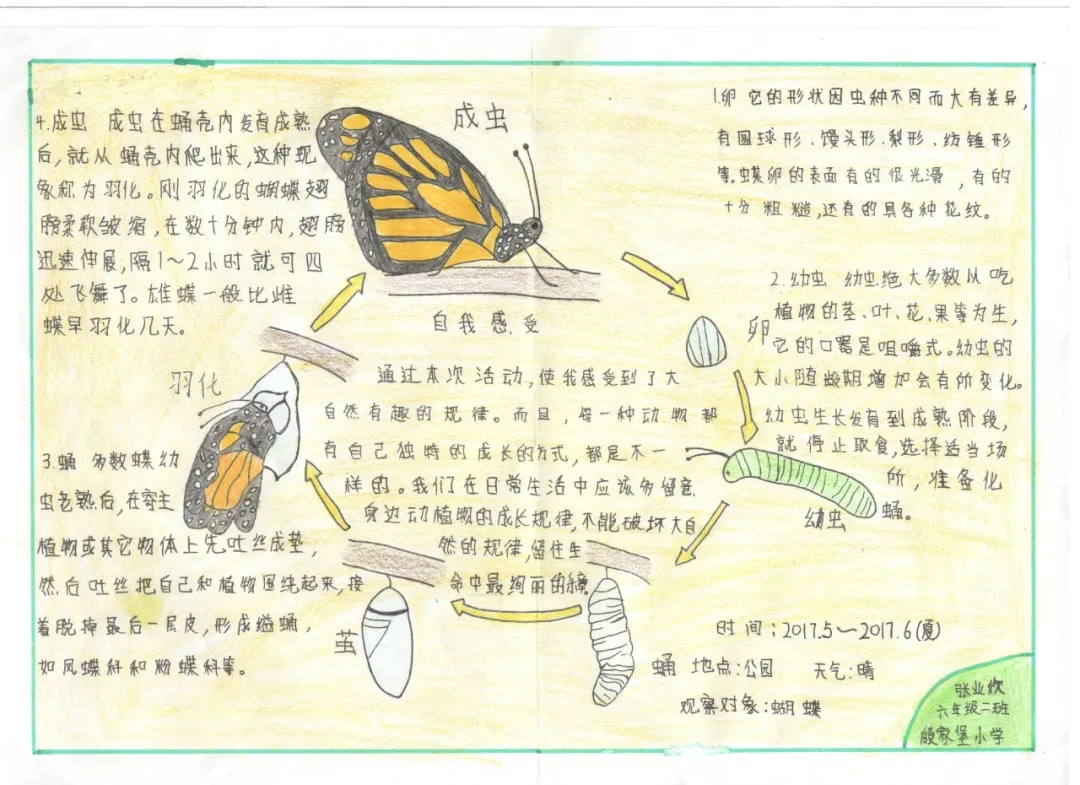 成虫
1.卵 它的形状因虫种不同而大有差异,
有圆球形、馒头形、梨形、纺锤形
等。蝶卵的表面有的很光滑,有的
十分粗糙,还有的具各种花纹。
2.幼虫 幼虫绝大多数以吃
植物的茎、叶、花、果等为生,
它的口器是咀嚼式。幼虫的
大小随龄期增加会有所变化。
幼虫生长发育到成熟阶段,
就停止取食,选择适当场
所,准备化
蛹。
卵
幼虫
4.成虫 成虫在蛹壳内发育成熟
后,就从蛹壳内爬出来,这种现
象称为羽化。刚羽化的蝴蝶翅
膀柔软皱缩,在数十分钟内,翅膀
迅速伸展,隔1~2小时就可四
处飞舞了。雄蝶一般比雌
蝶早羽化几天。
羽化
3.蛹 多数蝶幼
虫老熟后,在寄主
植物或其它物体上先吐丝成垫,
然后吐丝把自己和植物围绕起来,接
着脱掉最后一层皮,形成缢蛹,
如凤蝶科和粉蝶科等。
茧
自我感受
通过本次活动,使我感受到了大
自然有趣的规律。而且,每一种动物都
有自己独特的成长的方式,都是不一
样的。我们在日常生活中应该多留意
身边动植物的成长规律,不能破坏大自
然的规律,留住生
命中最绚丽的
蛹
时间:2017.5~2017.6(夏)
地点:公园 天气:晴
观察对象:蝴蝶
张业
六年级二班
殷家堡小学